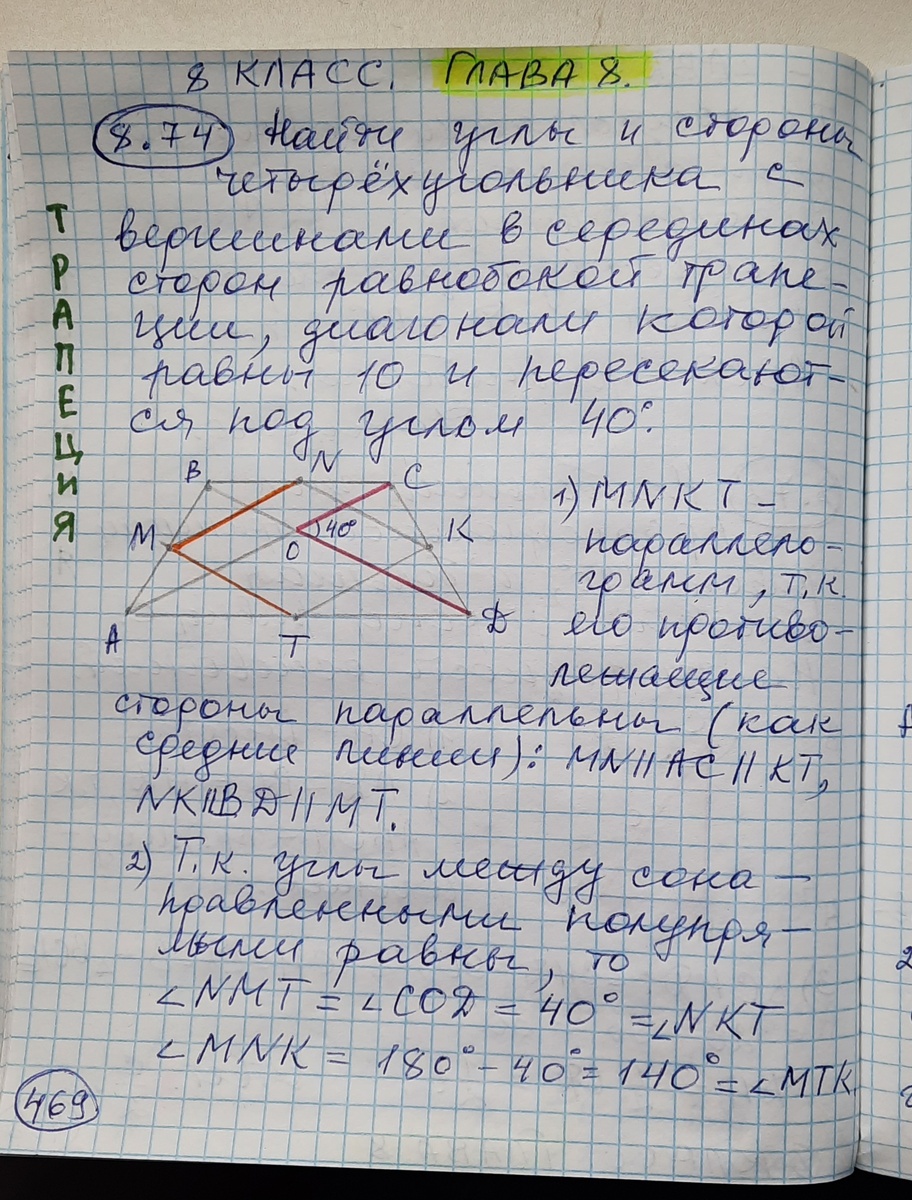 8 КЛАСС. ГЛАВА 8.
8.74 Найти углы и стороны
четырёхугольника с
вершинами в серединах
сторон равнобокой трапе-
ции, диагонали которой
равны 10 и пересекают-
ся под углом 40°.
ТРАПЕЦИЯ
B N C
M O 40° K
A T D
1) MNKT –
параллело-
грамм, т.к.
его противо-
лежащие
стороны параллельны (как
средние линии): MN||AC||KT,
NK||BD||MT.
2) Т.к. углы между сона-
правленными полупря-
мыми равны, то
∠NMT = ∠COD = 40° = ∠NKT
∠MNK = 180° – 40° = 140° = ∠MTK
469